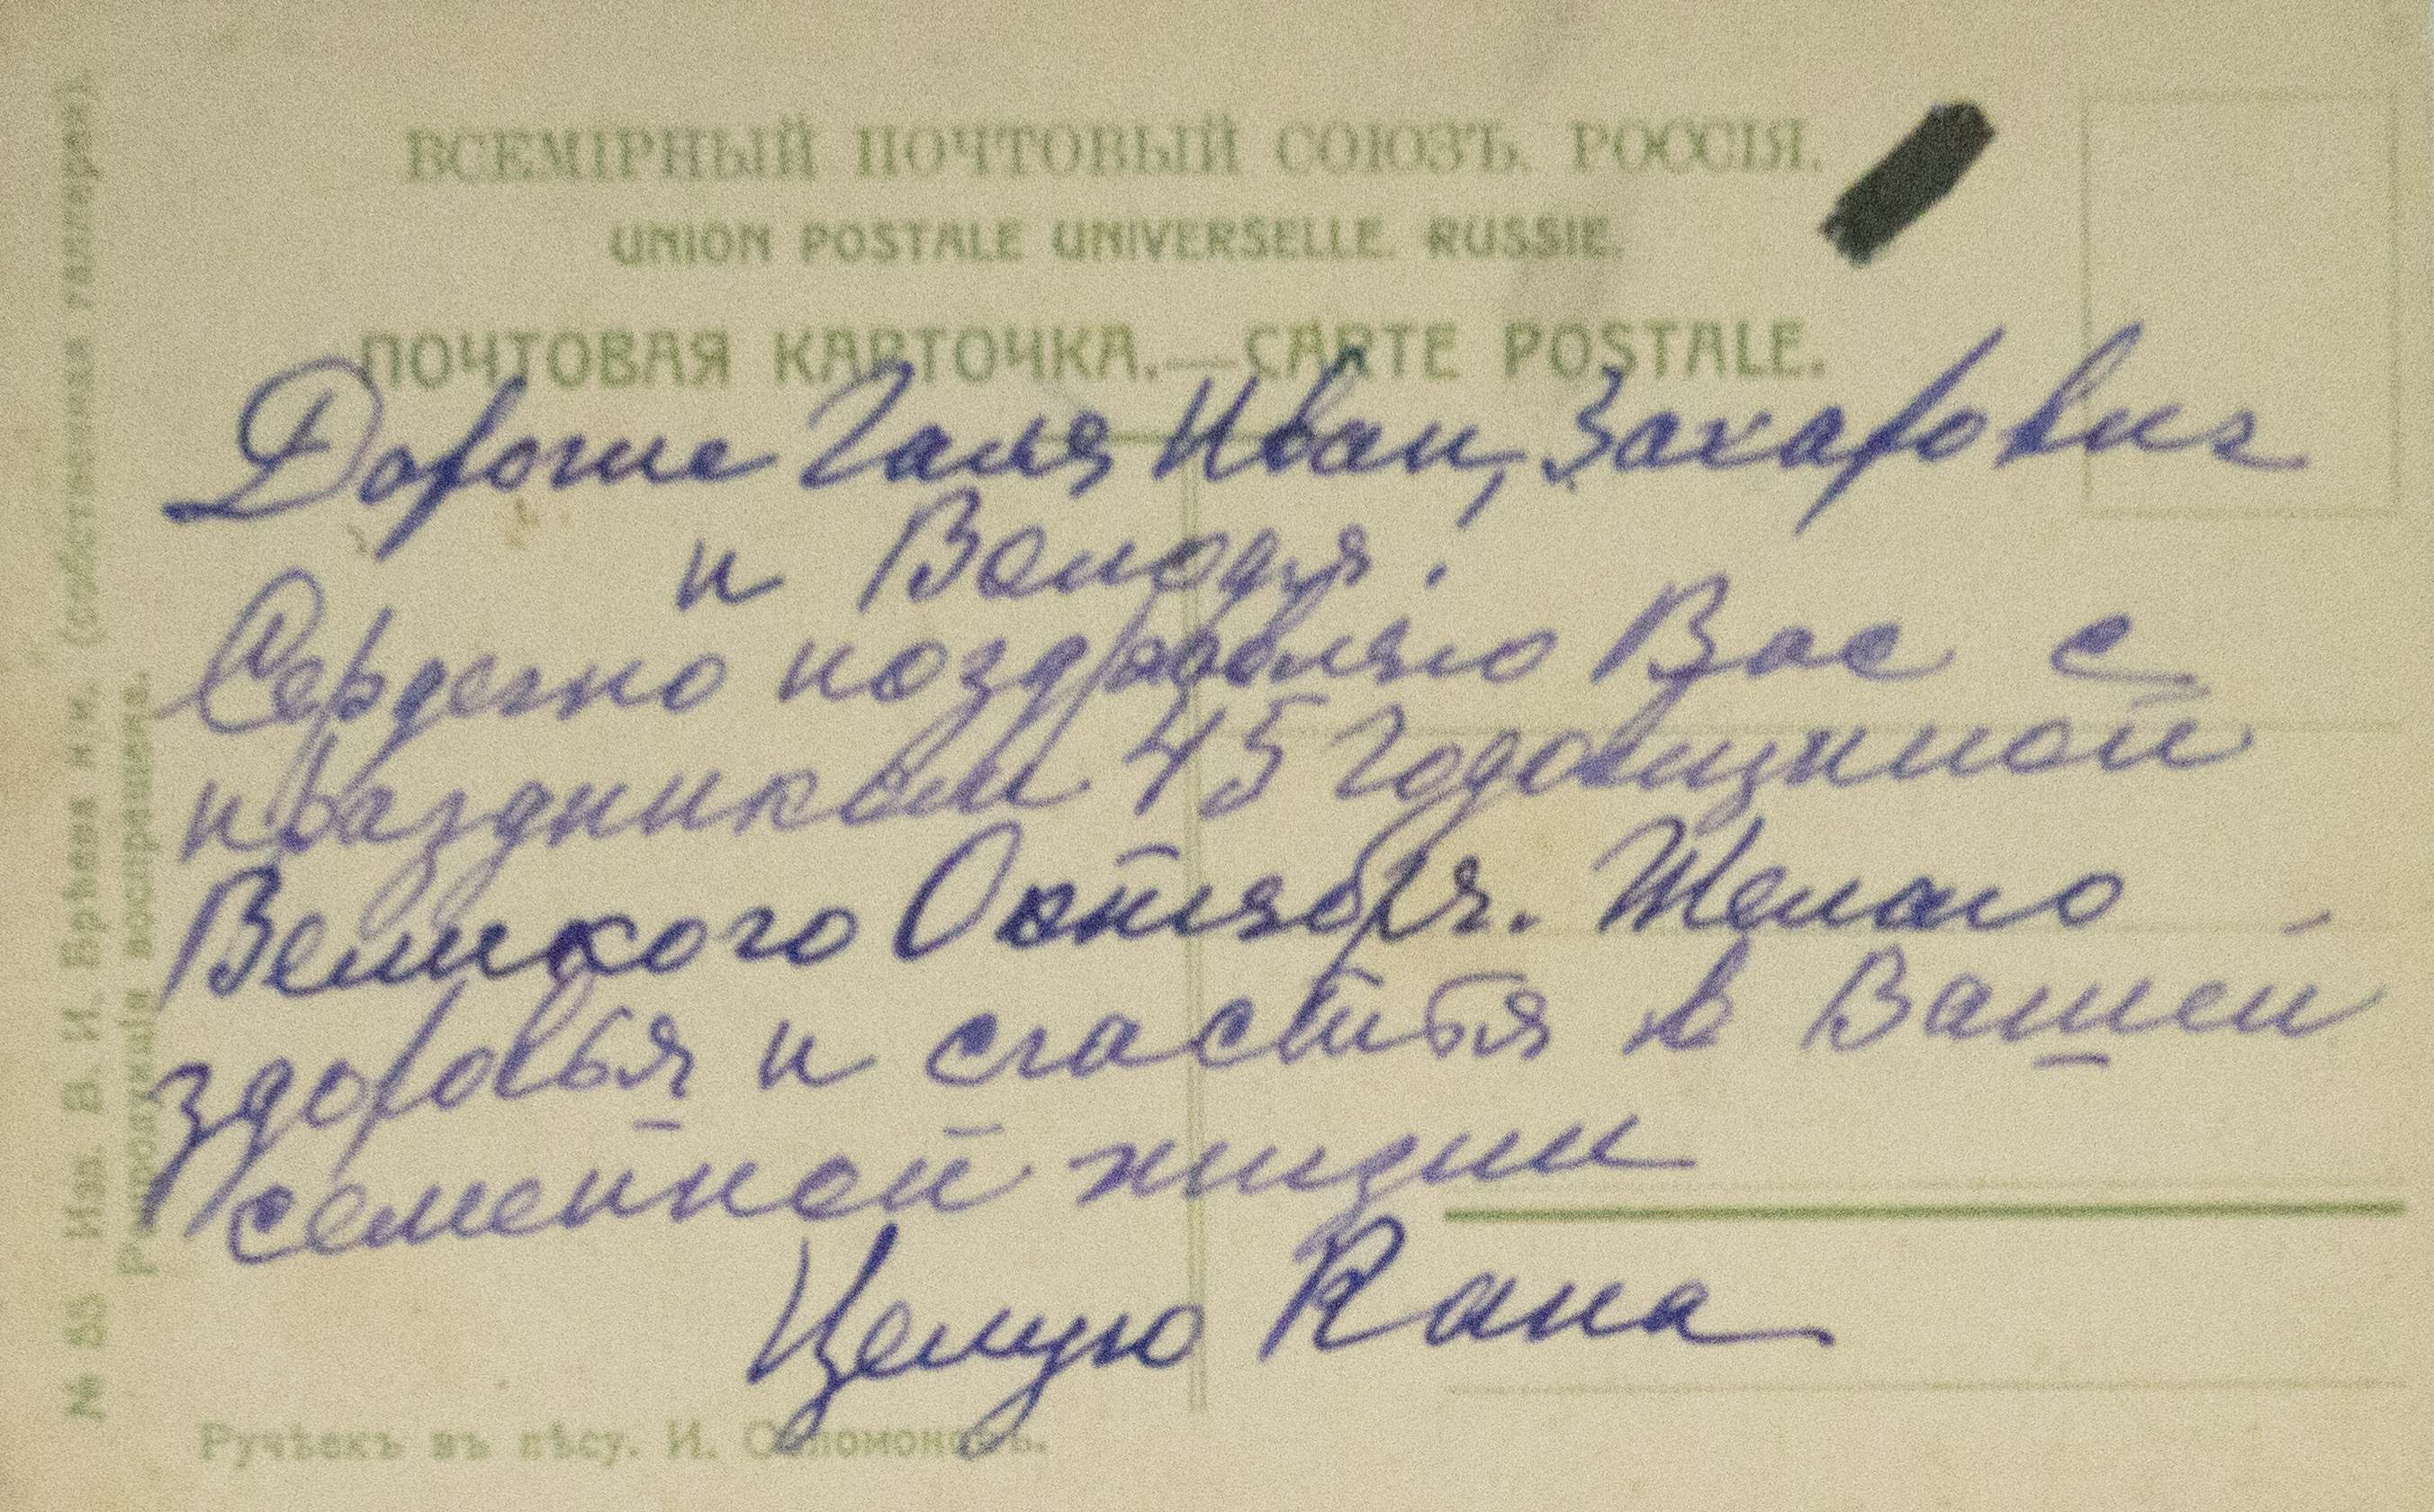 ВСЕМІРНЫЙ ПОЧТОВЫЙ СОЮЗЪ. РОССІЯ.
UNION POSTALE UNIVERSELLE. RUSSIE.
ПОЧТОВАЯ КАРТОЧКА.—CARTE POSTALE.
Дорогие Галя, Иван Захарович
и Володя!
Сердечно поздравляю Вас с
праздником 45 годовщиной
Великого Октября. Желаю
здоровья и счастья в Вашей
семейной жизни
Целую Кана
Ручѣекъ въ лѣсу. И.
№ 55 Изд. В. И. (собственная галлерея).
Репродукція воспрещена.